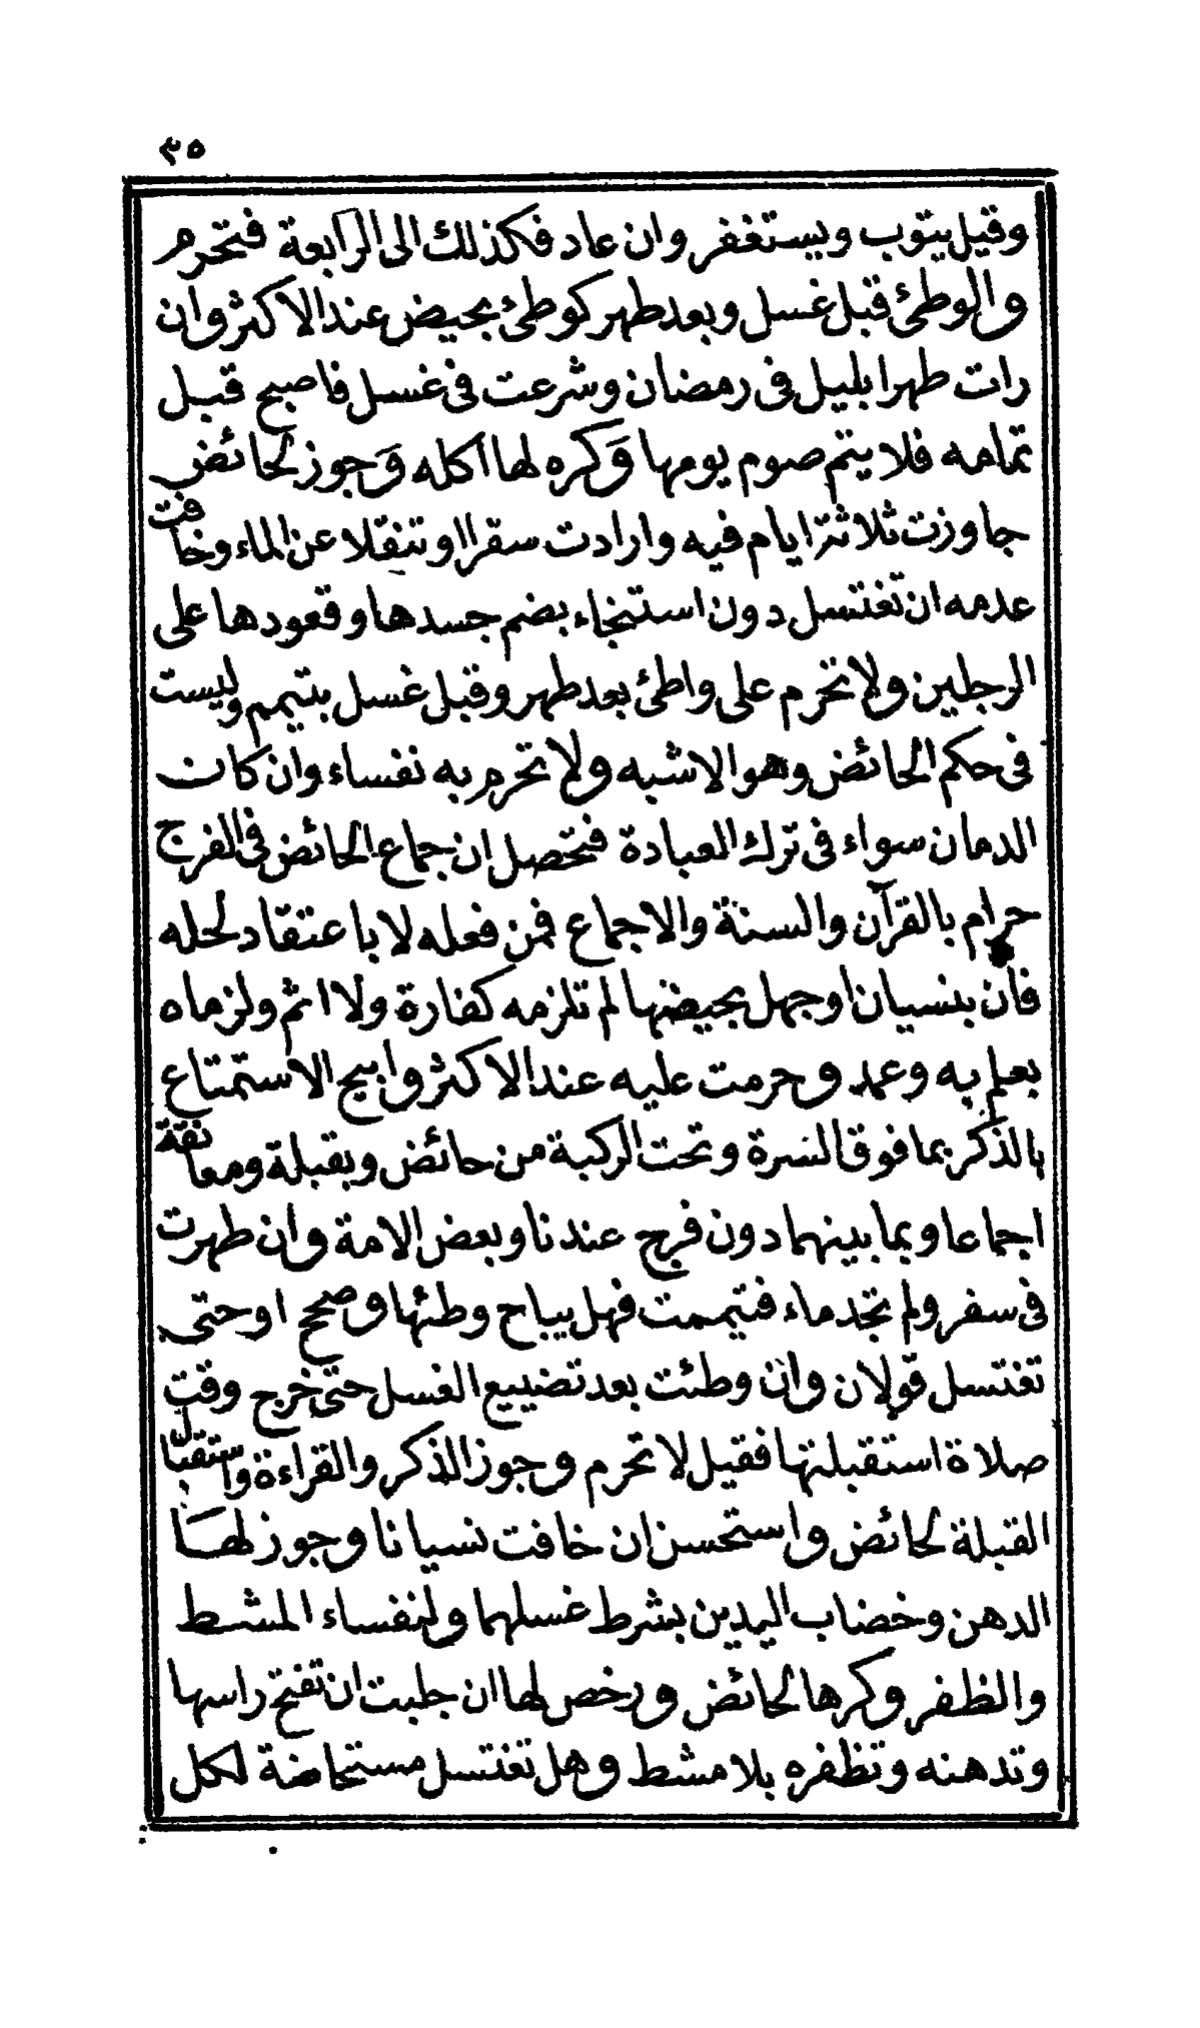 ٣٥
وقيل يتوب ويستغفر وان عاد فكذلك الى الرابعة فتحرم
والوطئ قبل غسل وبعد طهر كوطئ بحيض عند الاكثر وان
رات طهرا بليل فى رمضان وشرعت فى غسل فاصبح قبل
تمامه فلا يتم صوم يومها وكره لها اكله وجوز لحائض
جاوزت ثلاثة ايام فيه وارادت سقرا او تنقلا عن الماء وخافت
عدمه ان تغتسل دون استنجاء بضم جسدها وقعودها على
الرجلين ولا تحرم على واطئ بعد طهر وقبل غسل بتيمم وليست
فى حكم الحائض وهو الاشبه ولا تحرم به نفساء وان كات
الدمان سواء فى ترك العبادة فتحصل ان جماع الحائض فى الفرج
حرام بالقرآن والسنة والاجماع فمن فعله لا باعتقاد لحله
فان بنسيان اوجهل بحيضها لم تلزمه كفارة ولا اثم ولزماه
بعلم به وعمد وحرمت عليه عند الاكثر وابيح الاستمتاع
بالذكر بما فوق السرة وتحت الركبة من حائض وبقبلة ومعانقة
اجماعا وبما بينهما دون فرج عندنا وبعض الامة وان طهرت
فى سفر ولم تجد ماء فتيممت فهل يباح وطئها وصحح اوحتى
تغتسل قولان وان وطئت بعد تضييع الغسل حتى خرج وقت
صلاة استقبلتها فقيل لا تحرم وجوز الذكر والقراءة واستقبال
القبلة لحائض واستحسن ان خافت نسيانا وجوز لهـا
الدهن وخضاب اليدين بشرط غسلهما ولنفساء المشط
والظفر وكرها لحائض ورخص لها ان جلبت ان تفتح راسها
وتدهنه وتظفره بلا مشط وهل تغتسل مستحاضة لكل